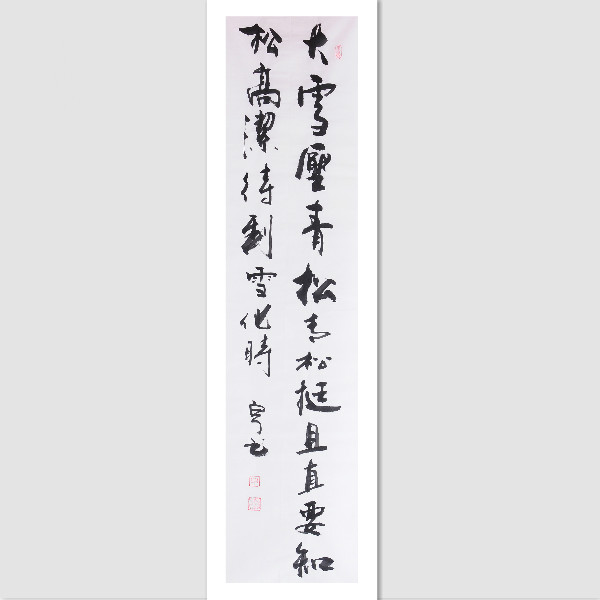 大雪壓青松青松挺且直要知
松高潔待到雪化時